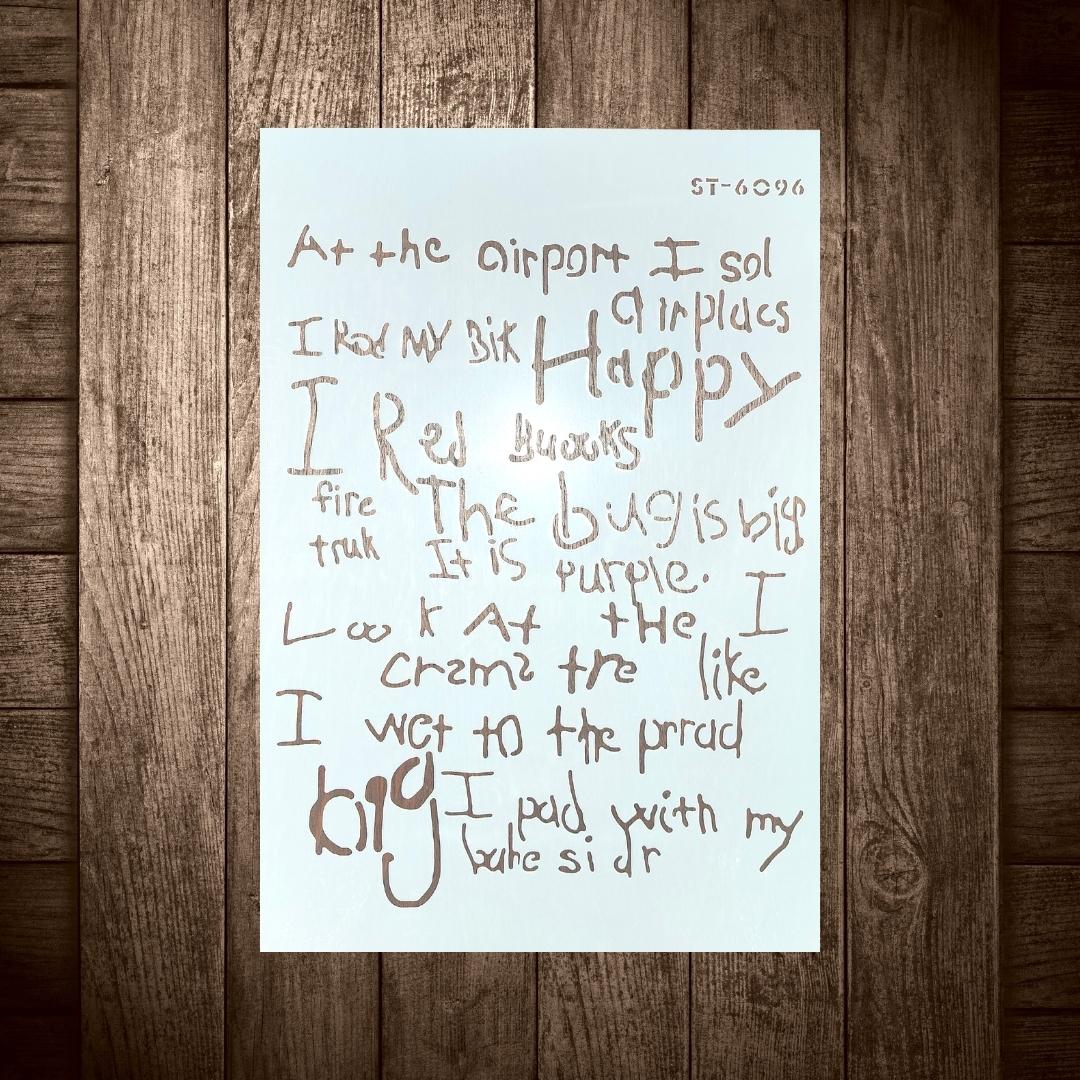 ST-6096
At the airport I sol
airplacs
I Rod MY Bik Happy
I Red Buooks
fire The bug is big
truk It is purple.
Look At the I
crems tre like
I wet to the prrad
big I pad with my
buhe si dr